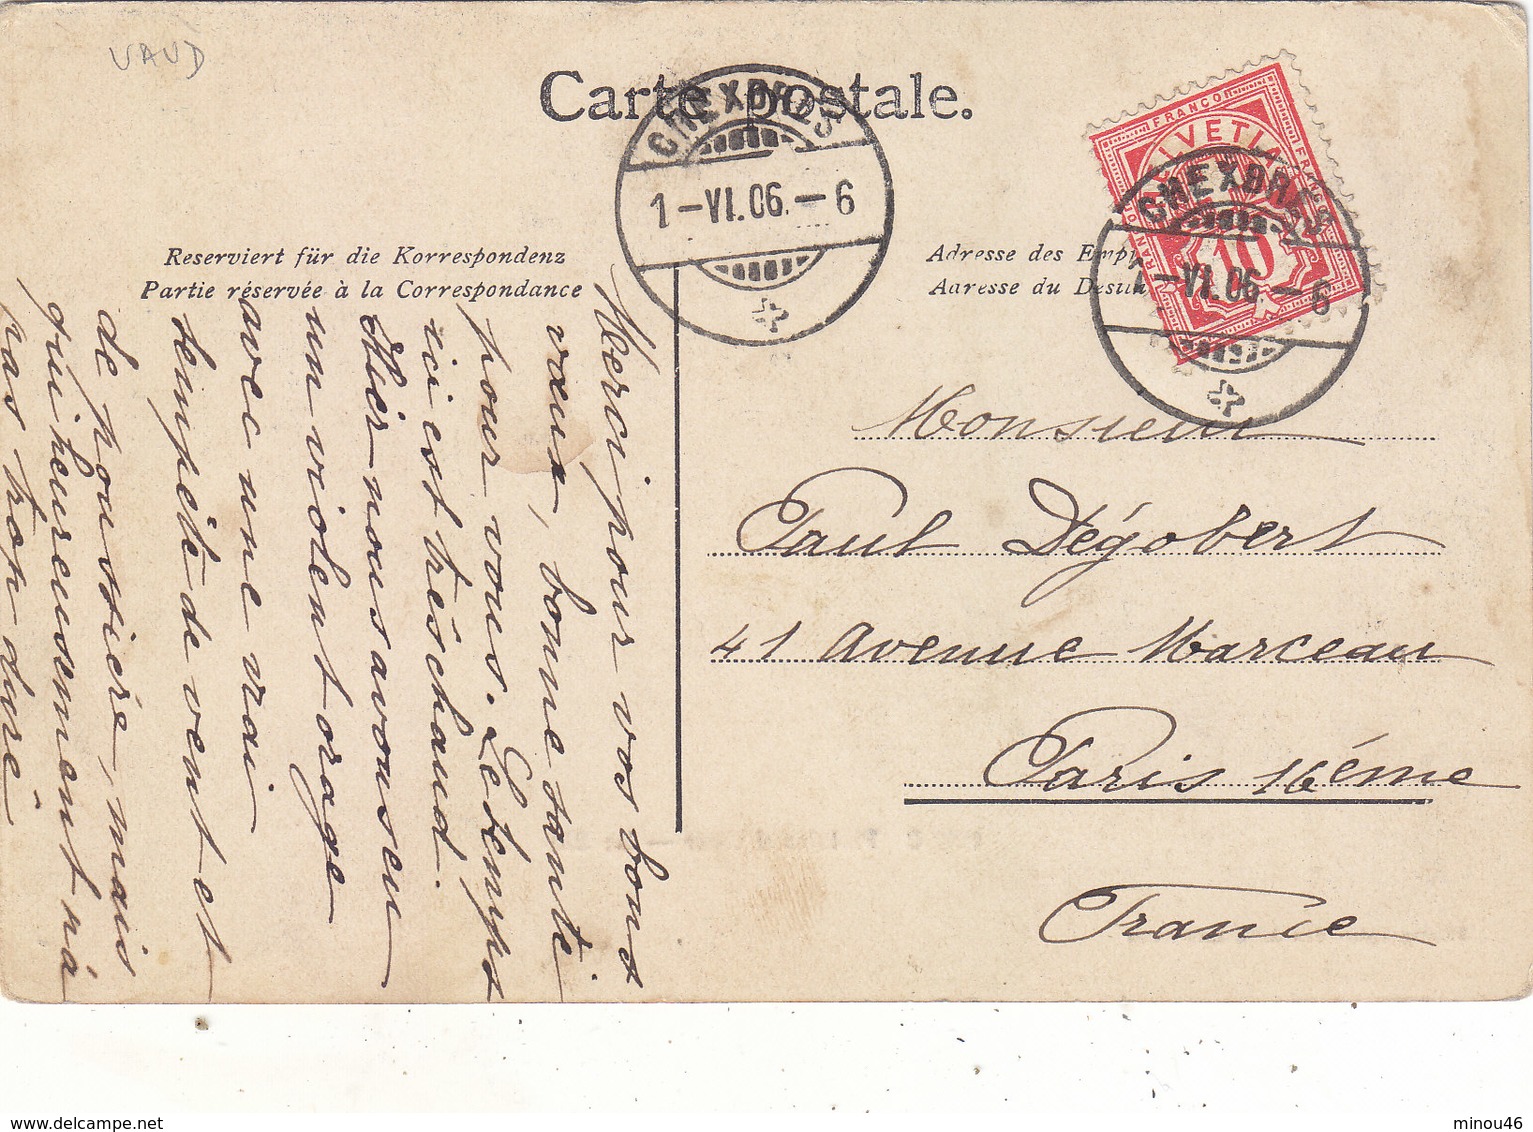 VAUD
Carte postale.
CHEXBRES
1-VI.06.-6
FRANCO
HELVETIA
10
CHEXBRES
1-VI.06.-6
Reserviert für die Korrespondenz
Partie réservée à la Correspondance
Adresse des Emp
Adresse du Destin
Monsieur
Paul Dégobert
41 Avenue Marceau
Paris 16ème
France
Merci pour vos bons
vœux, bonne santé
pour vous. Le temps
ici est très chaud.
Hier nous avons eu
un violent orage
avec une vraie
tempête de vent et
de poussière, mais
qui heureusement n'a
pas trop duré
minou46